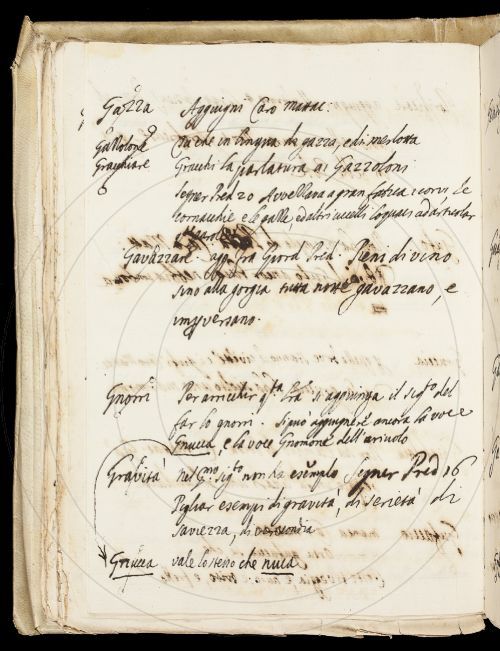 Gazza Aggiugni Caro mattac:
Gazzolone Cuche in lingua di gazza, e di merlotta
Gracchiare Gracchi la parlatura ai Gazzoloni
Segner Pred 20 Avvellava a gran fatica i corvi le
cornacchie e le galle, ed altri uccelli loquaci ad articolar
Gavazzare. agg. fra Giord Pred. Pieni di vino
sino alla gorgia tutta notte gavazzano, e
imperversano.
Gnorri Per arricchir qta fra^e si aggiunga il sigto del
far lo gnorri. Si può aggiugnere ancora la voce
Gnucca, e la voce Gnomone dell'
Gravità nel gmo sigto non ha esempio Segner Pred 16
Pigliar esempi di gravità, di serietà di
saviezza, di verecondia
Gnucca vale lo stesso che nuca